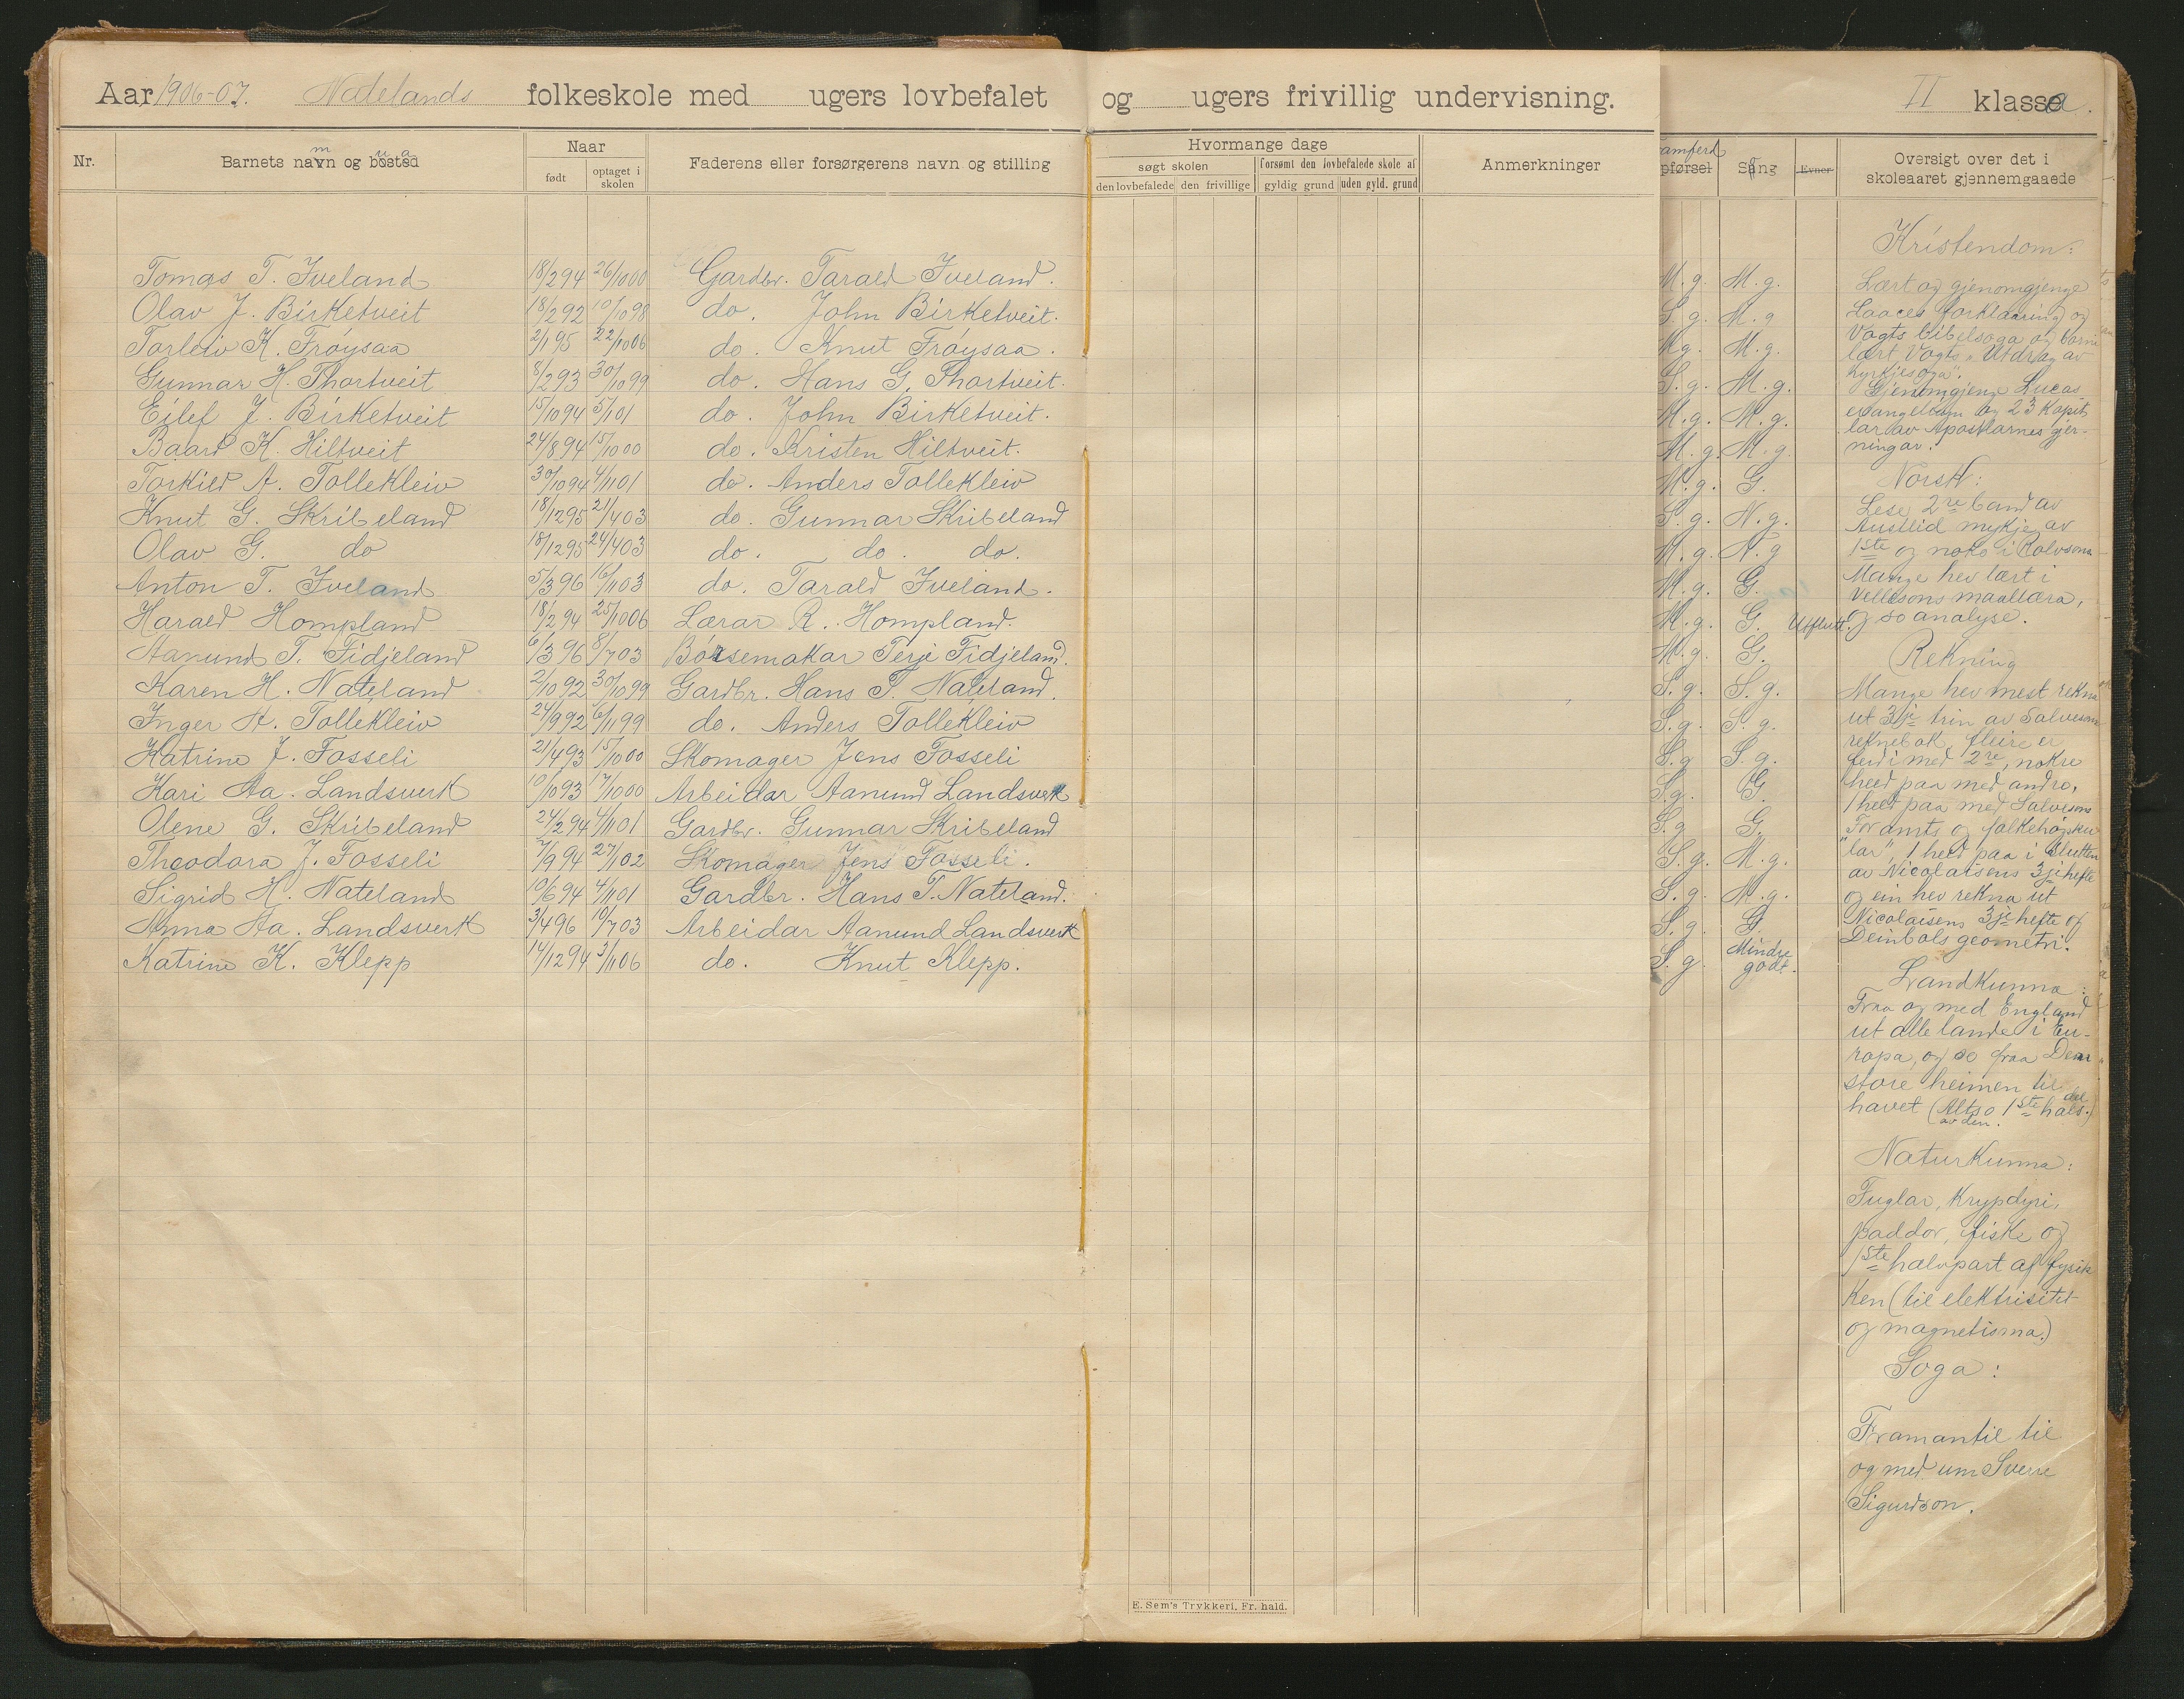 Aar 1906-07. Natelands folkeskole med ugers lovbefalet og ugers frivillig undervisning.
II klassa.
Nr.
Barnets namn og bustad
Naar
født
optaget i skolen
Faderens eller forsørgerens navn og stilling
Hvormange dage
søgt skolen
forsømt den lovbefalede skole af
den lovbefalede
den frivillige
gyldig grund
uden gyld. grund
Anmerkninger
amferd
pførsel
Sang
Evner
Oversigt over det i
skoleaaret gjennemgaaede
Tomas T. Iveland 18/2 94 26/10 00 Gardbr. Tarald Iveland. M.g. M.g.
Olav J. Birketveit 18/2 92 10/10 98 do. John Birketveit. S.g. M.g
Torleiv K. Frøysaa 2/1 95 22/10 06 do. Knut Frøysaa. M.g. M.g.
Gunnar H. Thortveit 8/2 93 30/10 99 do. Hans G. Thortveit. S.g. M.g.
Eilef J. Birketveit 15/10 94 5/1 01 do. John Birketveit. M.g. M.g.
Baard K. Hiltveit 24/8 94 15/10 00 do. Kristen Hiltveit. M.g. M.g.
Torkild A. Tollekleiv 30/10 94 4/11 01 do. Anders Tollekleiv M.g. G.
Knut G. Skribeland 18/12 95 21/4 03 do. Gunnar Skribeland S.g. N.g.
Olav G. do 18/12 95 24/4 03 do. do. do. M.g. N.g
Anton T. Iveland 5/3 96 16/11 03 do. Tarald Iveland. M.g. G.
Harald Hompland 18/2 94 25/10 06 Lærar R. Hompland. M.g. G. Utflutt.
Aanund T. Fidjeland 6/3 96 8/7 03 Børsemakar Terje Fidjeland. M.g. G.
Karen H. Nateland 2/10 92 30/10 99 Gardbr. Hans T. Nateland. S.g. S.g.
Inger A. Tollekleiv 24/9 92 6/11 99 do. Anders Tollekleiv S.g. S.g.
Katrine J. Fosseli 21/4 93 15/10 00 Skomager Jens Fosseli S.g S.g.
Kari Aa. Landsverk 10/10 93 17/10 00 Arbeidar Aanund Landsverk S.g. G.
Olene G. Skribeland 24/2 94 4/11 01 Gardbr. Gunnar Skribeland S.g G.
Theodora J. Fosseli 7/9 94 27/1 02 Skomager Jens Fosseli. S.g. M.g.
Sigrid H. Nateland 10/6 94 4/11 01 Gardbr. Hans T. Nateland. S.g. M.g.
Anna Aa. Landsverk 3/4 96 10/7 03 Arbeidar Aanund Landsverk S.g. G.
Katrine K. Klepp 14/12 94 3/11 06 do. Knut Klepp. S.g Mindre godt.
Kristendom:
Lært og gjenomgjenge
Laaces forklaaring og
Vogts bibelsoga og
lært Vogts "Utdrag av
kyrkjesoga".
Gjenomgjenge Lucas
evangelium og 23 kapit
lar av Apostlarnes gjer-
ningar.
Norsk:
Lese 2re band av
Austlid mykje av
1ste og noko i Rolvsons
Mange hev lært i
Vellesons maallæra,
og so analyse.
Rekning
Mange hev mest rekna
ut 3dje trin av Salvesons
reknebok, fleire er
ferdi med 2re, nokre
held paa med andre,
1 held paa med Salvesons
"For amts og folkehøgsku
lar", 1 held paa i slutten
av Nicolaisens 3je hefte
og ein hev rekna ut
Nicolaisens 3je hefte og
Deinbols geometri.
Landkunna:
Fraa og med England
ut alle lande i Eu-
ropa, og so fraa Den
store heimen til
havet (Altso 1ste hals. del
av den.)
Naturkunna:
Fuglar, krypdyri,
paddor, fiske og
1ste halvpart af fysik
ken (til elektrisitet
og magnetisma.)
Soga:
Framantil til
og med um Sverre
Sigurdson.
E. Sem's Trykkeri, Fr. hald.